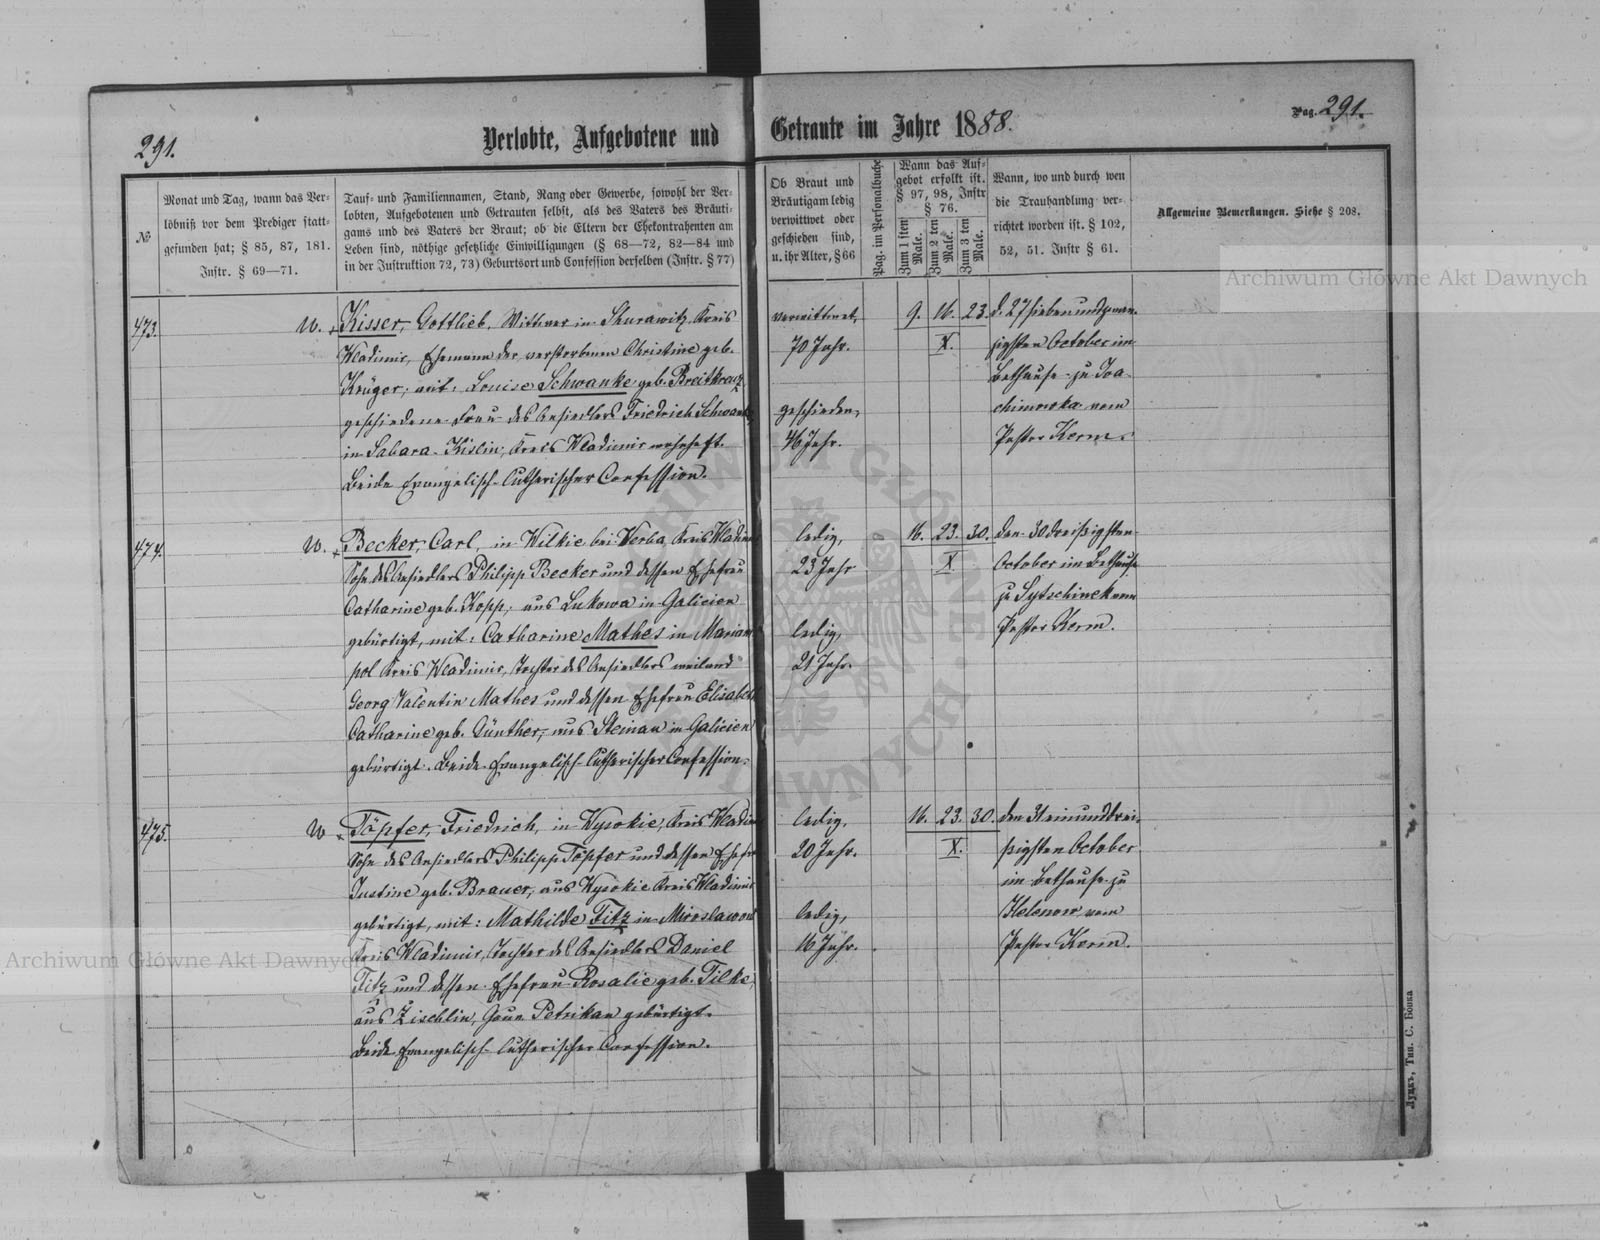 291.
Verlobte, Aufgebotene und
Getraute im Jahre 1888.
Pag. 291.
№
Monat und Tag, wann das Ver-
löbniß vor dem Prediger statt-
gefunden hat; § 85, 87, 181.
Instr. § 69—71.
Tauf- und Familiennamen, Stand, Rang oder Gewerbe, sowohl der Ver-
lobten, Aufgebotenen und Getrauten selbst, als des Vaters des Bräuti-
gams und des Vaters der Braut; ob die Eltern der Ehekontrahenten am
Leben sind, nöthige gesetzliche Einwilligungen (§ 68—72, 82—84 und
in der Instruktion 72, 73) Geburtsort und Confession derselben (Instr. § 77)
Ob Braut und
Bräutigam ledig
verwittwet oder
geschieden sind,
u. ihr Alter, § 66
Pag. im Personalbuche
Wann das Auf-
gebot erfolkt ist.
§ 97, 98, Instr
§ 76.
Zum 1 sten Male.
Zum 2 ten Male.
Zum 3 ten Male.
Wann, wo und durch wen
die Trauhandlung ver-
richtet worden ist. § 102,
52, 51. Instr § 61.
Allgemeine Bemerkungen. Siehe § 208.
473.
W.
Kisser, Gottlieb, Wittwer in Shurawitz Kreis
Wladimir, Ehemann der verstorbenen Christine geb.
Krüger, mit: Louise Schwanke geb. Breitkreuz
geschiedene Frau des Ansiedlers Friedrich Schwanke
in Sabara-Kislin, Kreis Wladimir wohnhaft.
Beide Evangelisch-lutherischer Confession.
verwittwet,
70 Jahr.
geschieden,
46 Jahr.
9. 16. 23.
X.
d. 27 siebenundzwan-
zigsten October im
Bethause zu Joa-
chimowka vom
Pastor Kerm.
474.
W.
Becker, Carl, in Wilkie bei Werba, Kreis Wladimir
Sohn des Ansiedlers Philipp Becker und dessen Ehefrau
Catharine geb. Kopp, aus Lukowa in Galicien
gebürtigt, mit: Catharine Mathes in Mariam
pol Kreis Wladimir, Tochter des Ansiedlers weiland
Georg Valentin Mathes und dessen Ehefrau Elisabeth
Catharine geb. Günther, aus Steinau in Galicien
gebürtigt. Beide Evangelisch-lutherischer Confession.
ledig,
23 Jahr
ledig,
21 Jahr.
16. 23. 30.
X
den 30 dreißigsten
October im Bethause
zu Sytschinek vom
Pastor Kerm.
475.
W
Töpfer, Friedrich, in Wysokie, Kreis Wladimir
Sohn des Ansiedlers Philipp Töpfer und dessen Ehefrau
Justine geb. Brauer, aus Wysokie Kreis Wladimir
gebürtigt, mit: Mathilde Titz in Miroslawow
Kreis Wladimir, Tochter des Ansiedlers Daniel
Titz und dessen Ehefrau Rosalie geb. Tilke,
aus Zischlin, Gouv. Petrikau gebürtigt.
Beide Evangelisch-lutherischer Confession.
ledig,
20 Jahr.
ledig,
16 Jahr.
16. 23. 30.
X.
den 31 einunddrei-
ßigsten October
im Bethause zu
Helenow vom
Pastor Kerm.
Луцкъ, Тип. С. Бонка
Archiwum Główne Akt Dawnych
Archiwum Główne Akt Dawnych